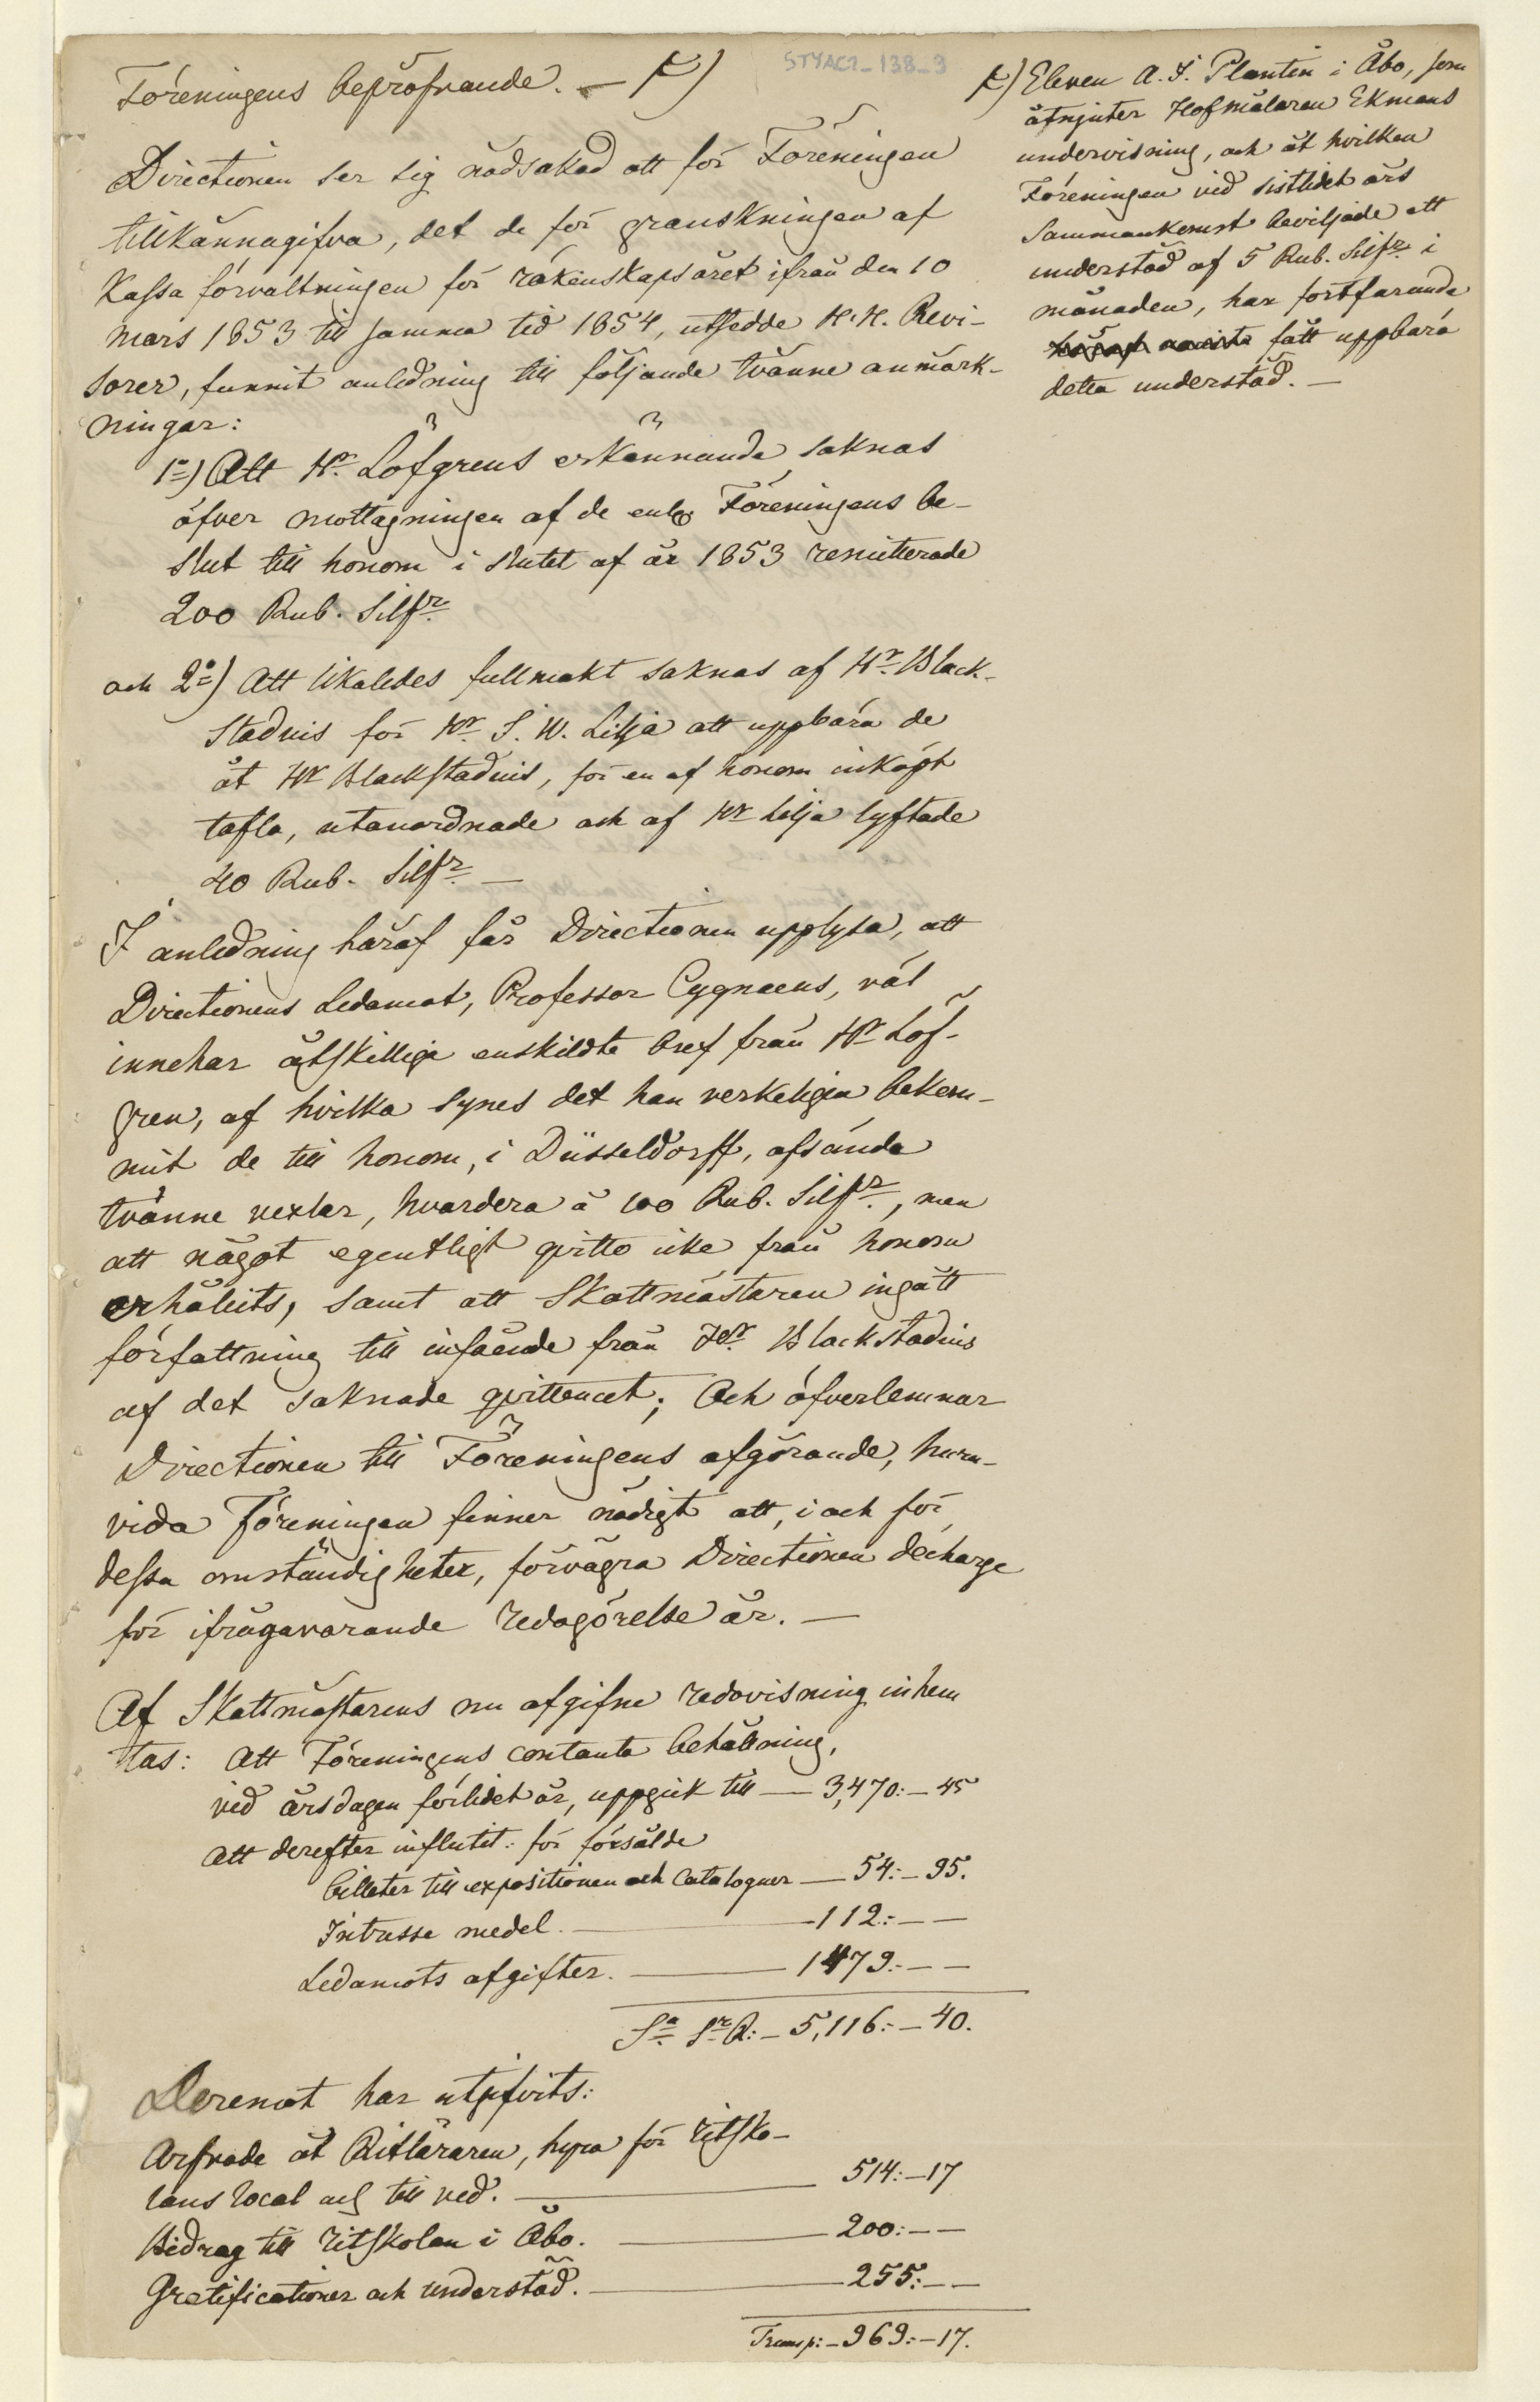 STYAC2_138_3
Föreningens bepröfvande. —
Directionen ser sig nödsakad att för Föreningen
tillkännagifva, det de för granskningen af
Kassa förvaltningen för räkenskapsåret ifrån den 10
Mars 1853 till samma tid 1854, utsedde H.H. Revi-
sorer, funnit anledning till följande tvänne anmärk-
ningar:
1o) Att Hr Löfgrens erkännande saknas
öfver mottagningen af de enl. Föreningens be-
slut till honom i slutet af år 1853 remitterade
200 Rub. Silfr
och 2o) Att likaledes fullmakt saknas af Hr Black-
stadius för Hr S. W. Lilja att uppbära de
åt Hr Blackstadius, för en af honom inköpt
tafla, utanordnade och af Hr Lilja lyftade
40 Rub. Silfr. —
I anledning häraf får Directionen upplysa, att
Directionens Ledamot, Professor Cygnaeus, väl
innehar åtskillige enskildte bref från Hr Löf-
gren, af hvilka synes det han verkeligen bekom-
mit de till honom, i Düsseldorff, afsända
tvänne vexlar, hvardera à 100 Rub. Silfr., men
att något egentligt qvitto icke från honom
erhållits, samt att Skattmästaren ingått
författning till infående från Hr Blackstadius
af det saknade qvittencet; Och öfverlemnar
Directionen till Föreningens afgörande, huru-
vida Föreningen finner nödigt att, i och för
dessa omständigheter, förvägra Directionen décharge
för ifrågavarande redogörelse år. —
Af Skattmästarens nu afgifne redovisning inhem
tas: Att Föreningens contanta behållning,
vid årsdagen förlidet år, uppgick till — 3,470:— 45
Att derefter influtit: för försålde
billeter till expositionen och Cataloguer — 54:— 95.
Intresse medel. — 112:— —
Ledamots afgifter. — 1479:— —
Sa Sr R:— 5,116:— 40.
Deremot har utgifvits:
Arfvode åt Ritläraren, hyra för ritsko-
lans local och till ved. — 514:—17
Bidrag till ritskolan i Åbo. — 200:— —
Gratificationer och understöd. — 255:— —
Transp:— 969:—17.
Eleven A. F. Plantin i Åbo, som
åtnjuter Hofmålaren Ekmans
undervisning, och åt hvilken
Föreningen vid sistlidet års
Sammankomst beviljade ett
understöd af 5 Rub. Silfr i
månaden, har fortfarande
fått uppbära
detta understöd. —